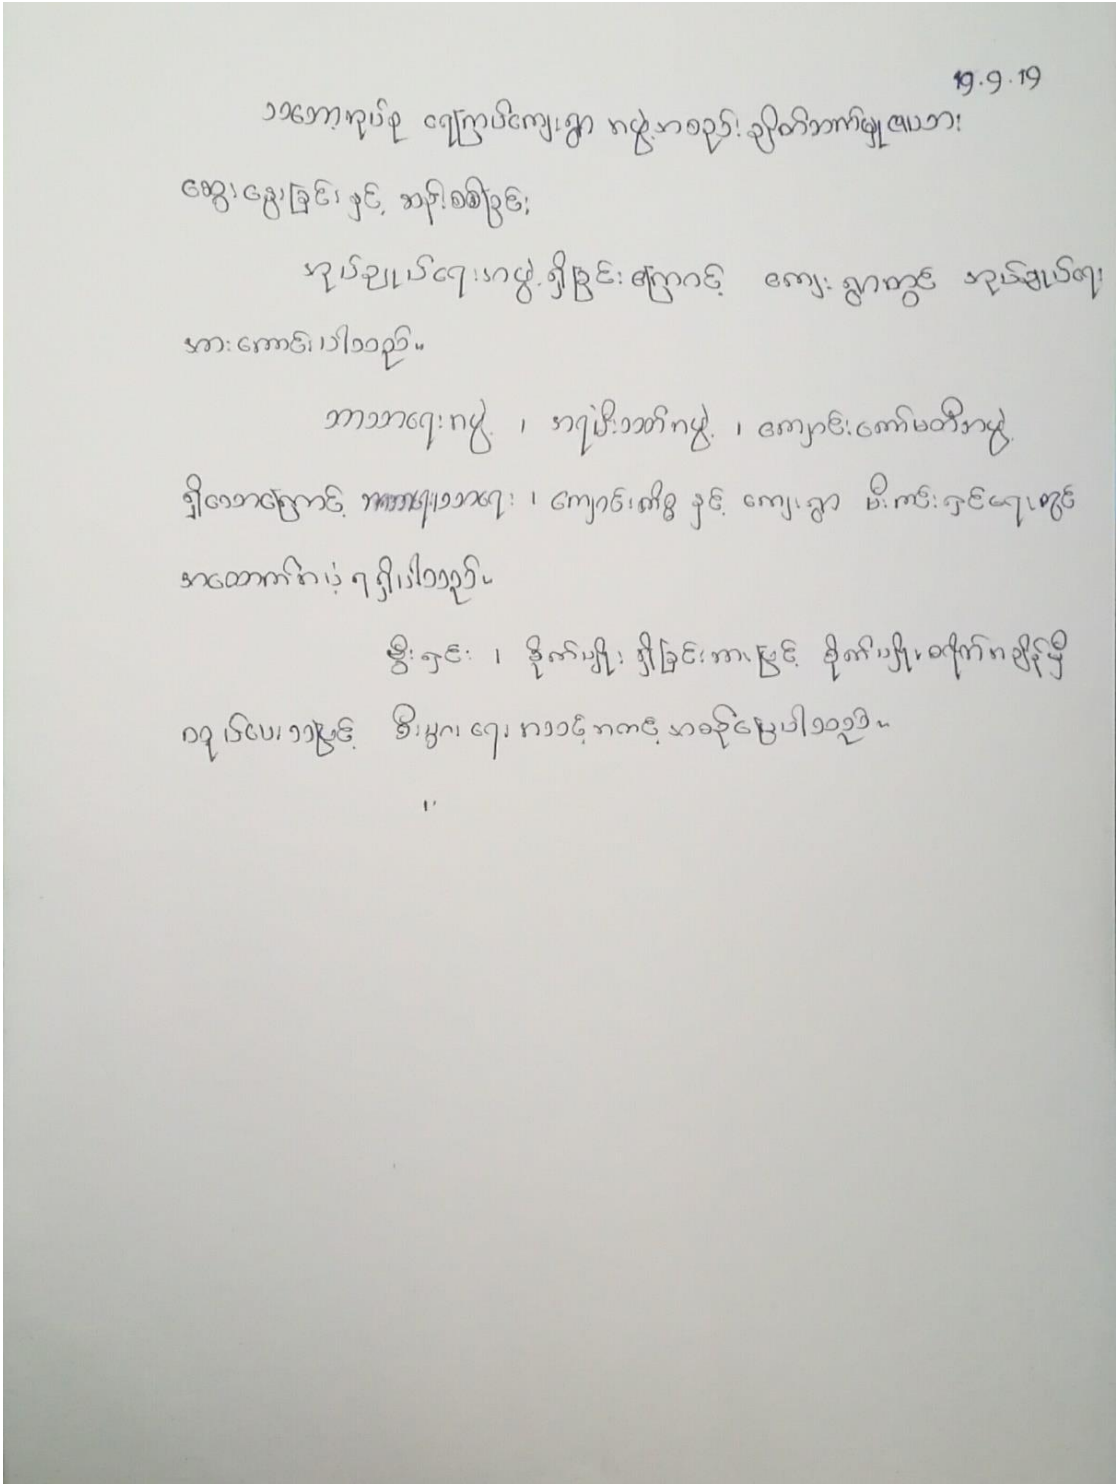 19.9.19
သဘောအုပ်စု ရေကြပ်ကျေးရွာ အဖွဲ့အစည်း ချိတ်ဆက်မှုဇယား
ဆွေးနွေးခြင်း နှင့် ဆန်းစစ်ခြင်း
အုပ်ချုပ်ရေးအဖွဲ့ ရှိခြင်းကြောင့် ကျေးရွာတွင် အုပ်ချုပ်ရေး
အားကောင်းပါသည်။
ဘာသာရေးအဖွဲ့ ၊ အရံမီးသတ်အဖွဲ့ ၊ ကျောင်းကော်မတီအဖွဲ့
ရှိသောကြောင့် ဘာသာရေး ၊ ကျောင်းကိစ္စ နှင့် ကျေးရွာ မီးကင်းရှင်းရေးတွင်
အထောက်အပံ့ ရရှိပါသည်။
စိုက်ပျိုး ရှိခြင်းအားဖြင့် စိုက်ပျိုးစရိတ်အချိန်မှီ
ထုပ်ပေးသဖြင့် စီးပွားရေး အသင့်အတင့် အစဉ်ပြေပါသည်။